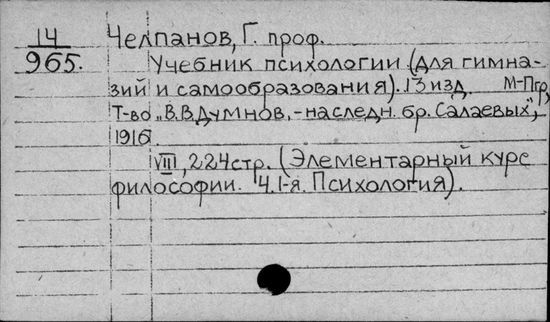 14
965.
Челпанов, Г. проф.
Учебник психологии (для гимна-
зий и самообразования). 13 изд. М-Пгр,
Т-во „В.В.Думнов,-наследн. бр. Салаевых",
1916.
VIII, 224стр. (Элементарный курс
философии. Ч.I-я. Психология).